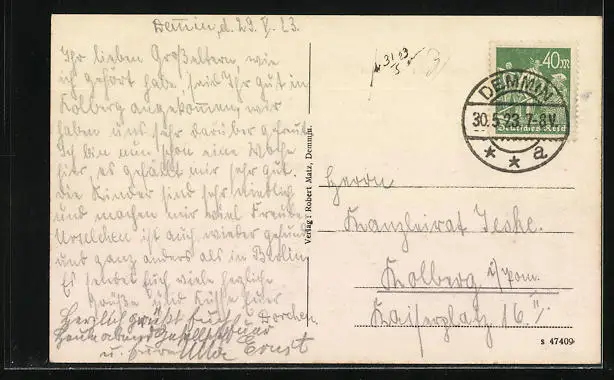 Demmin, d. 29. V. 23.
Ihr lieben Großeltern, wie
ich gehört habe, seid Ihr gut in
Kolberg angekommen, wir
haben uns sehr darüber gefreut.
Ich bin nun schon eine Woche
hier, es gefällt mir sehr gut.
Die Kinder sind sehr niedlich
und machen mir viel Freude.
Urselchen ist auch wieder gesund
und ganz anders als in Berlin.
Es sendet Euch viele herzliche
Grüße und Küsse Eure
Dorchen.
Herzlich grüßt Euch
u. Eure Ulla Ernst
Verlag: Robert Matz, Demmin.
31 23
5
40 M
Deutsches Reich
DEMMIN
30.5.23.7-8V.
* * a
Herrn
Kanzleirat Jeske.
Kolberg i/Pom.
Kaiserplatz 16 II
s 47409